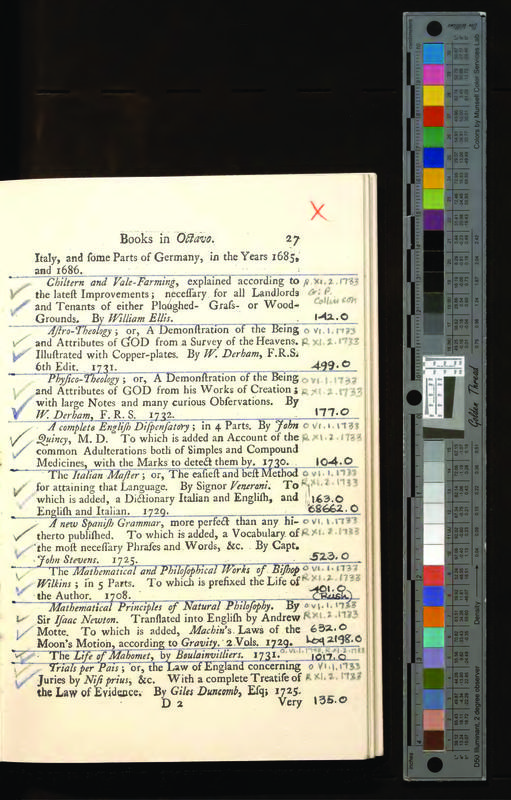 X
Books in Octavo. 27
Italy, and ſome Parts of Germany, in the Years 1685,
and 1686.
Chiltern and Vale-Farming, explained according to R.XI.2.1733
the lateſt Improvements; neceſſary for all Landlords Gi: P.
and Tenants of either Ploughed- Graſs- or Wood- Collinson
Grounds. By William Ellis. 142.0
Aſtro-Theology; or, A Demonſtration of the Being O VI.1.1733
and Attributes of GOD from a Survey of the Heavens. R XI.2.1733
Illuſtrated with Copper-plates. By W. Derham, F.R.S.
6th Edit. 1731. 499.0
Phyſico-Theology; or, A Demonſtration of the Being O VI.1.1733
and Attributes of GOD from his Works of Creation; R XI.2.1733
with large Notes and many curious Obſervations. By
W. Derham, F. R. S. 1732. 177.0
A complete Engliſh Diſpenſatory; in 4 Parts. By John O VI.1.1733
Quincy, M. D. To which is added an Account of the R XI.2.1733
common Adulterations both of Simples and Compound
Medicines, with the Marks to detect them by. 1730. 104.0
The Italian Maſter; or, The eaſieſt and beſt Method O VI.1.1733
for attaining that Language. By Signor Veneroni. To R XI.2.1733
which is added, a Dictionary Italian and Engliſh, and 163.0
Engliſh and Italian. 1729. 68662.0
A new Spaniſh Grammar, more perfect than any hi- O VI.1.1733
therto publiſhed. To which is added, a Vocabulary of R XI.2.1733
the moſt neceſſary Phraſes and Words, &c. By Capt.
John Stevens. 1725. 523.0
The Mathematical and Philoſophical Works of Biſhop O VI.1.1733
Wilkins; in 5 Parts. To which is prefixed the Life of R XI.2.1733
the Author. 1708. 401.0
(Rush)
Mathematical Principles of Natural Philoſophy. By O VI.1.1733
Sir Iſaac Newton. Tranſlated into Engliſh by Andrew R XI.2.1733
Motte. To which is added, Machin's Laws of the 632.0
Moon's Motion, according to Gravity. 2 Vols. 1729. Log 2198.0
The Life of Mahomet, by Boulainvilliers. 1731. O.VI.1.1733, R.XI.2.1733 1017.0
Trials per Pais; or, the Law of England concerning O VI.1.1733
Juries by Niſi prius, &c. With a complete Treatiſe of R XI.2.1733
the Law of Evidence. By Giles Duncomb, Eſq; 1725.
D 2 Very 135.0
Golden Thread
Colors by Munsell Color Services Lab
Density
D50 Illuminant, 2 degree observer